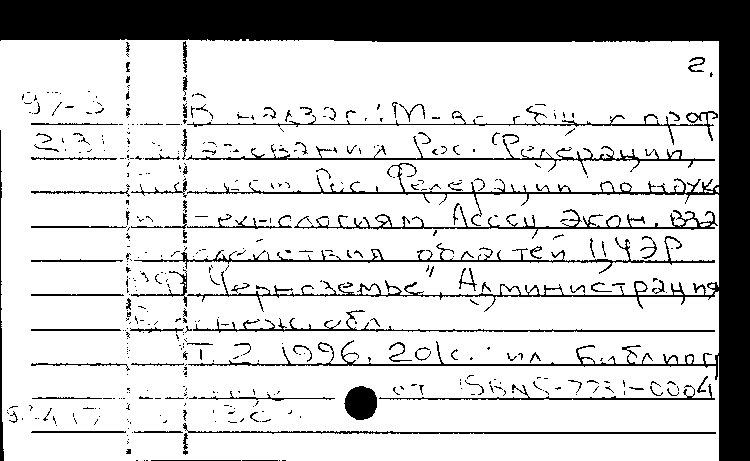 2.
97-3 В надзаг.: М-во общ. и проф
2131 образования Рос. Федерации,
Рос. Федерации по науке
и технологиям, Ассоц. экон. вза
модействия областей ЦЧЭР
РФ "Черноземье", Администрация
Воронеж. обл.
Т. 2. 1996. 201с.: ил. Библиогр
ISBN 5-7731-0004